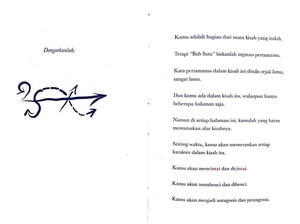 Dengarkanlah:
Kamu adalah bagian dari suatu kisah yang indah.
Tetapi "Bab Satu" bukanlah ingatan pertamamu.
Kata pertamamu dalam kisah ini ditulis sejak lama,
sangat lama.
Dan kamu ada dalam kisah ini, walaupun hanya
beberapa halaman saja.
Namun di setiap halaman ini, kamulah yang harus
memutuskan alur kisahnya.
Seiring waktu, kamu akan memerankan setiap
karakter dalam kisah itu.
Kamu akan mencintai dan dicintai.
Kamu akan membenci dan dibenci.
Kamu akan menjadi antagonis dan protagonis.